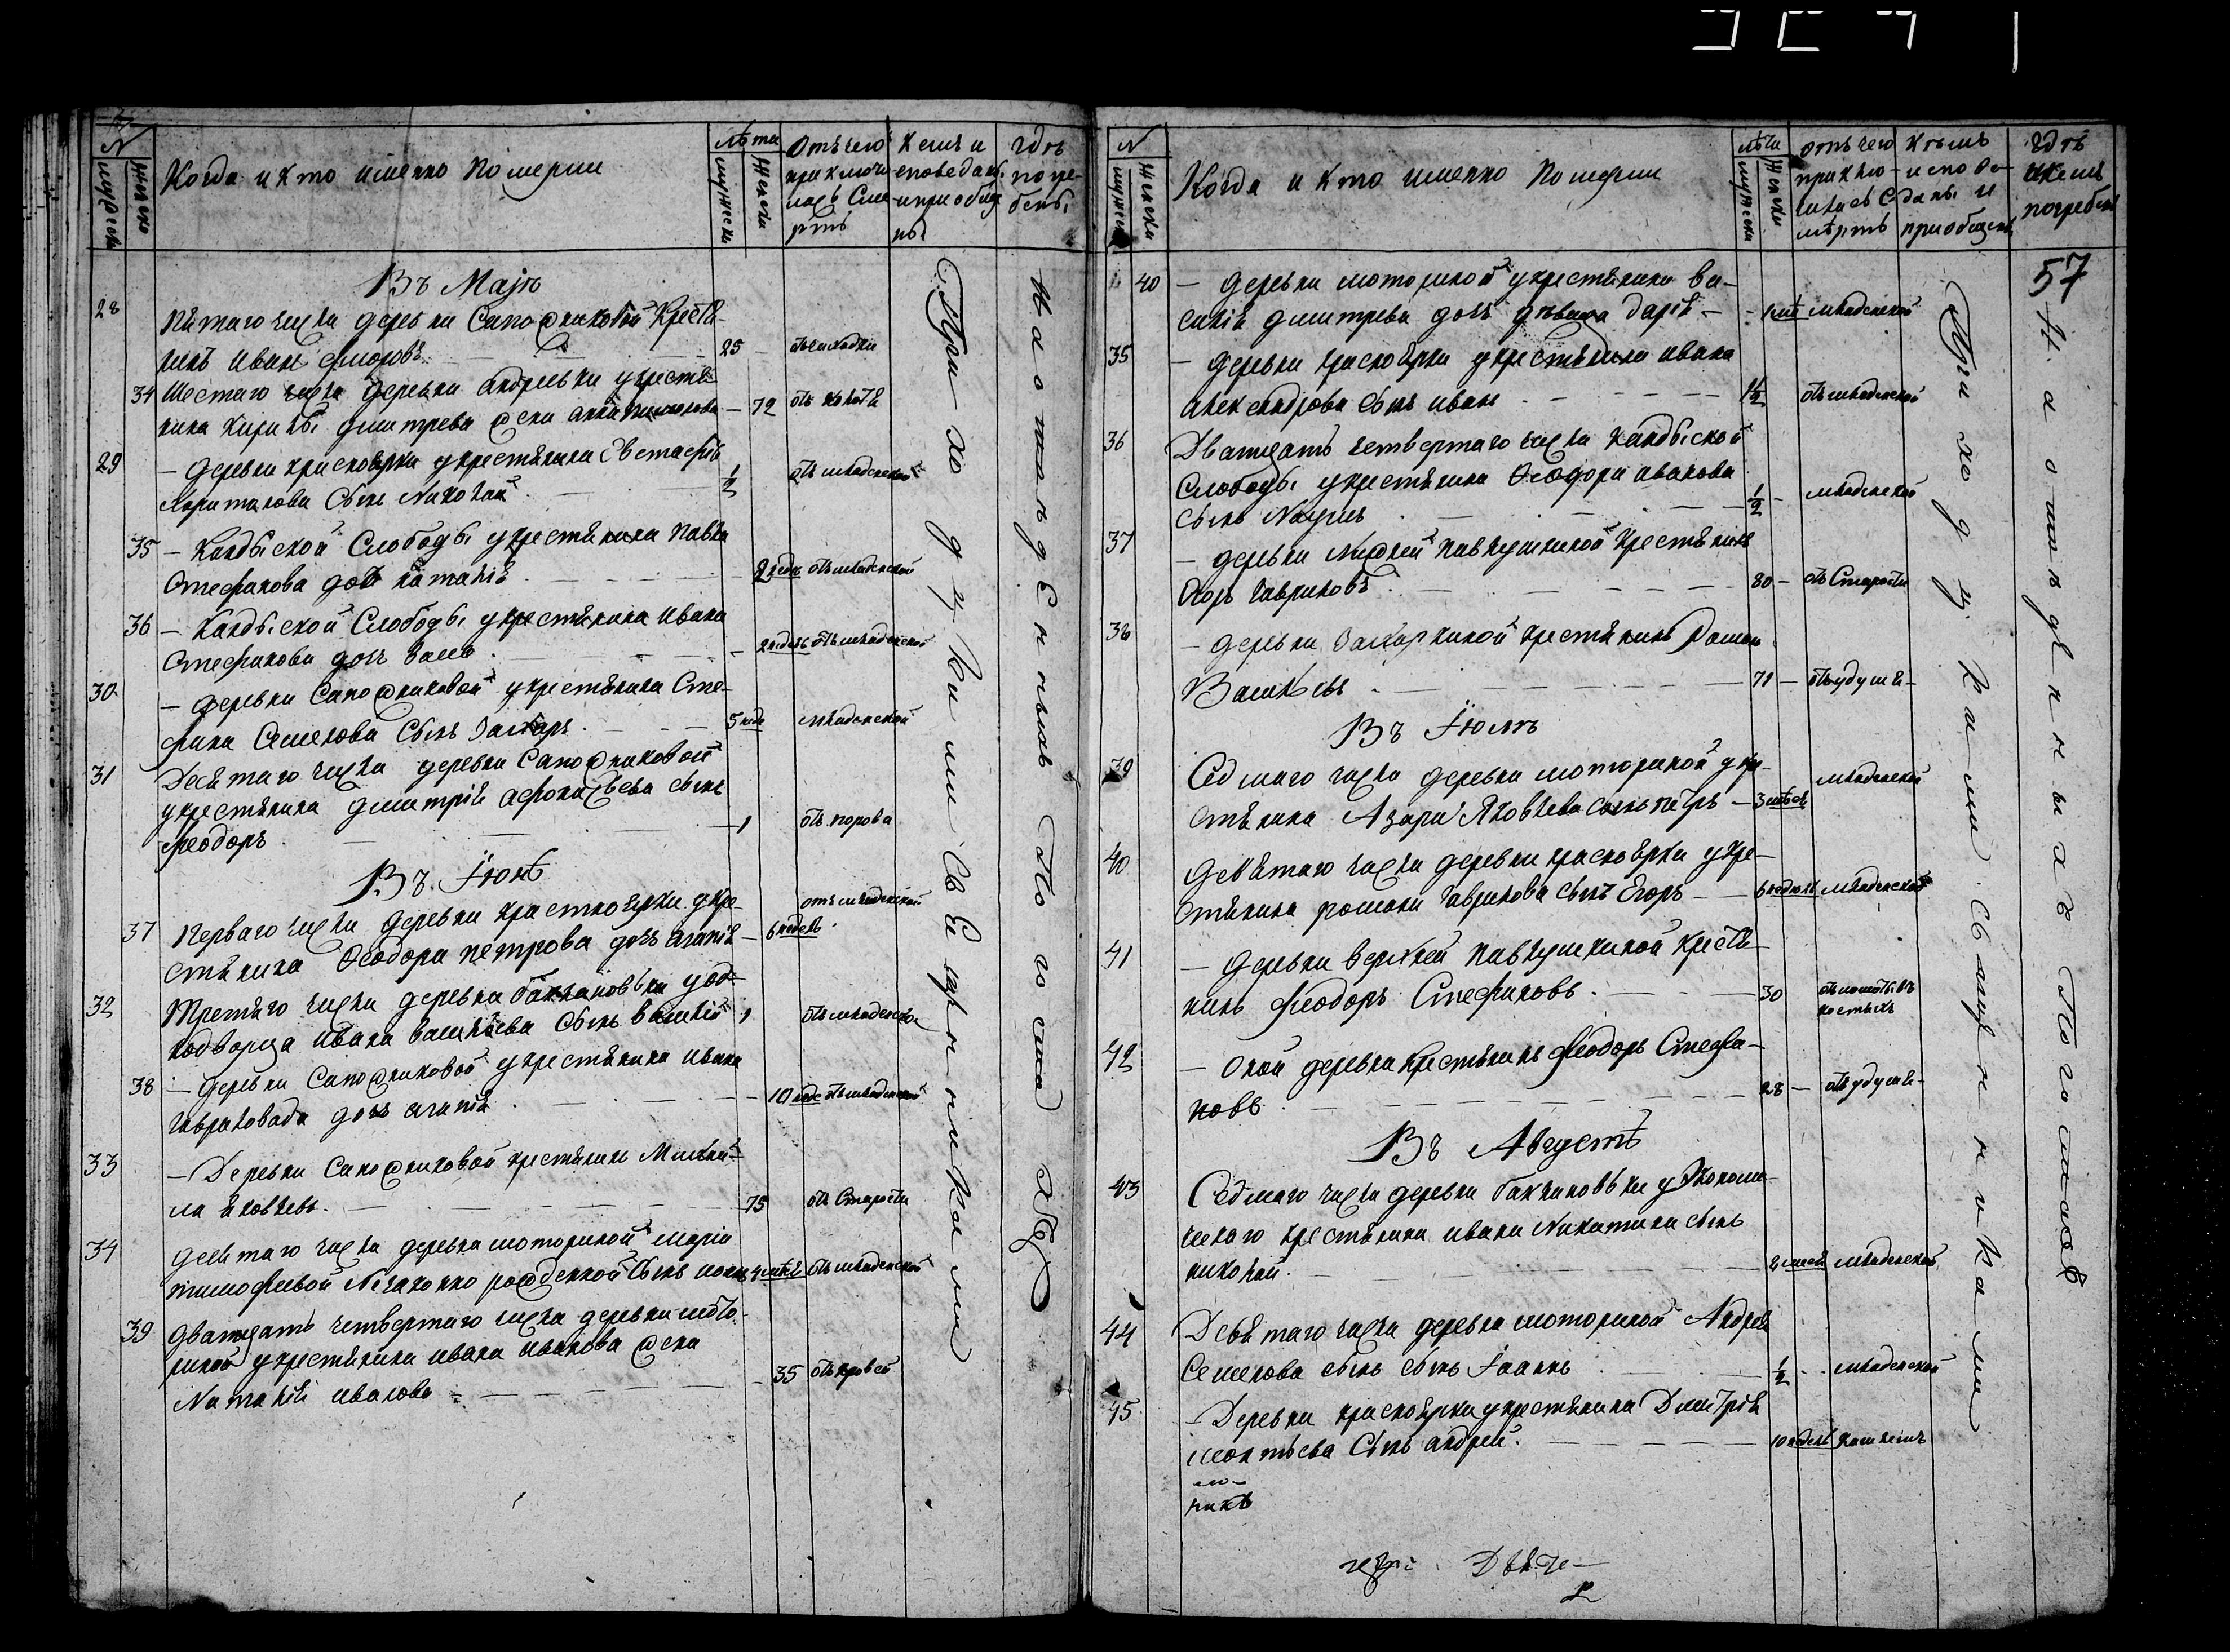 N
мужеск
женско
Когда и кто именно померли
лѣта
мужески
Женски
Отъ чего
приключи
лась Сме
рть
Кемъ и
споведан.
и приобще
ны
гдѣ
погре-
бены
Въ Маiѣ
28
пятаго числа деревни Сапожниковой Крестья-
нинъ Иванъ
25
отъ чахотки
34
Шестаго числа деревни андреевки у кресть-
нина Кирилы дмитрева жена анна
72
29
деревни красноярки у крестьянина Евстафiя
Харитонова сынъ Николай
1/2
отъ младенской
35
Кандыской Слободы у крестьянина Павла
Стефанова дочь наталiя
2 неде
отъ младенской
36
Кандыской Слободы у крестьянина Ивана
Стефанова дочь
2 недель
отъ младенской
30
деревни Сапожниковой у крестьянина Сте-
фана Семенова Сынъ Захаръ
5 неде
младенской
31
Десятаго числа деревни Сапожниковой
у крестьянина дмитрiя афонасьева сынъ
феодоръ
1
Въ Iюнѣ
37
Перваго числа деревни красноярки у кре-
стьянина Феодора петрова дочь агапiя
6 недель
отъ младенской
32
Третьяго числа деревни баклановки у одно-
подворца Ивана Васильева Сынъ Василiй
1
отъ младенской
38
деревни Сапожниковой у крестьянина Ивана
Гавриловада дочь агапiя
10 неде
отъ младенской
33
Деревни Сапожниковой крестьянинъ Михай-
ла яковлевъ
75
отъ Старости
34
девятаго числа деревни моториной марiи
тимофеевой Незаконно рожденной Сынъ
4
отъ младенской
39
дватцать четвертаго числа деревни мото-
риной у крестьянина ивана иванова жена
Наталiя иванова
35
При ходскими Священниками
На отведенномъ Погосте
N
мужеск
женски
Когда и кто именно померли
лѣта
мужески
Женски
отъ чего
приклю-
чилась С
мѣрть
кѣмъ
испове-
даны и
приобщен
гдѣ
и кемъ
погребены
57
40
деревни моториной у крестьянина ва-
силiя дмитрева дочь дѣвица дарiя
младенской
35
деревни красноярки у крестьянина ивана
александрова сынъ иванъ
1 1/2
отъ младенской
36
Дватцать четвертаго числа Кандыской
Слободы у крестьянина Феодора иванова
сынъ Наумъ
1/2
младенской
37
деревни Нижней павлушкиной крестьянинъ
Егоръ гавриловъ
80
отъ Старости
38
деревни Захаркиной крестьянинъ Романъ
Васильевъ
71
отъ удушья
Въ Iюлѣ
39
Седмаго числа деревни моториной у кре-
стьянина Азарiи Яковлева сынъ петръ
3
младенской
40
девятаго числа деревни красноярки у кре-
стьянина романа гаврилова сынъ Егоръ
6 недель
младенской
41
деревни верхней павлушкиной кресть-
нинъ феодоръ Стефановъ
30
отъ ломоты въ
костяхъ
42
Оной деревни крестьянинъ феодоръ Стефа-
новъ
28
отъ удушья
Въ Августѣ
43
Седмаго числа деревни баклановки у Экономи-
ческаго крестьянина ивана Никитина сынъ
николай
2
младенской
44
Девятаго числа деревни моториной Андрея
Семенова сынъ сынъ Iоаннъ
1/2
младенской
45
Деревни красноярки у крестьянина Дмитрiя
леонтьева Сынъ андрей
10 недель
кашлемъ
Приходскими Священниками
На отведенныхъ Погостахъ